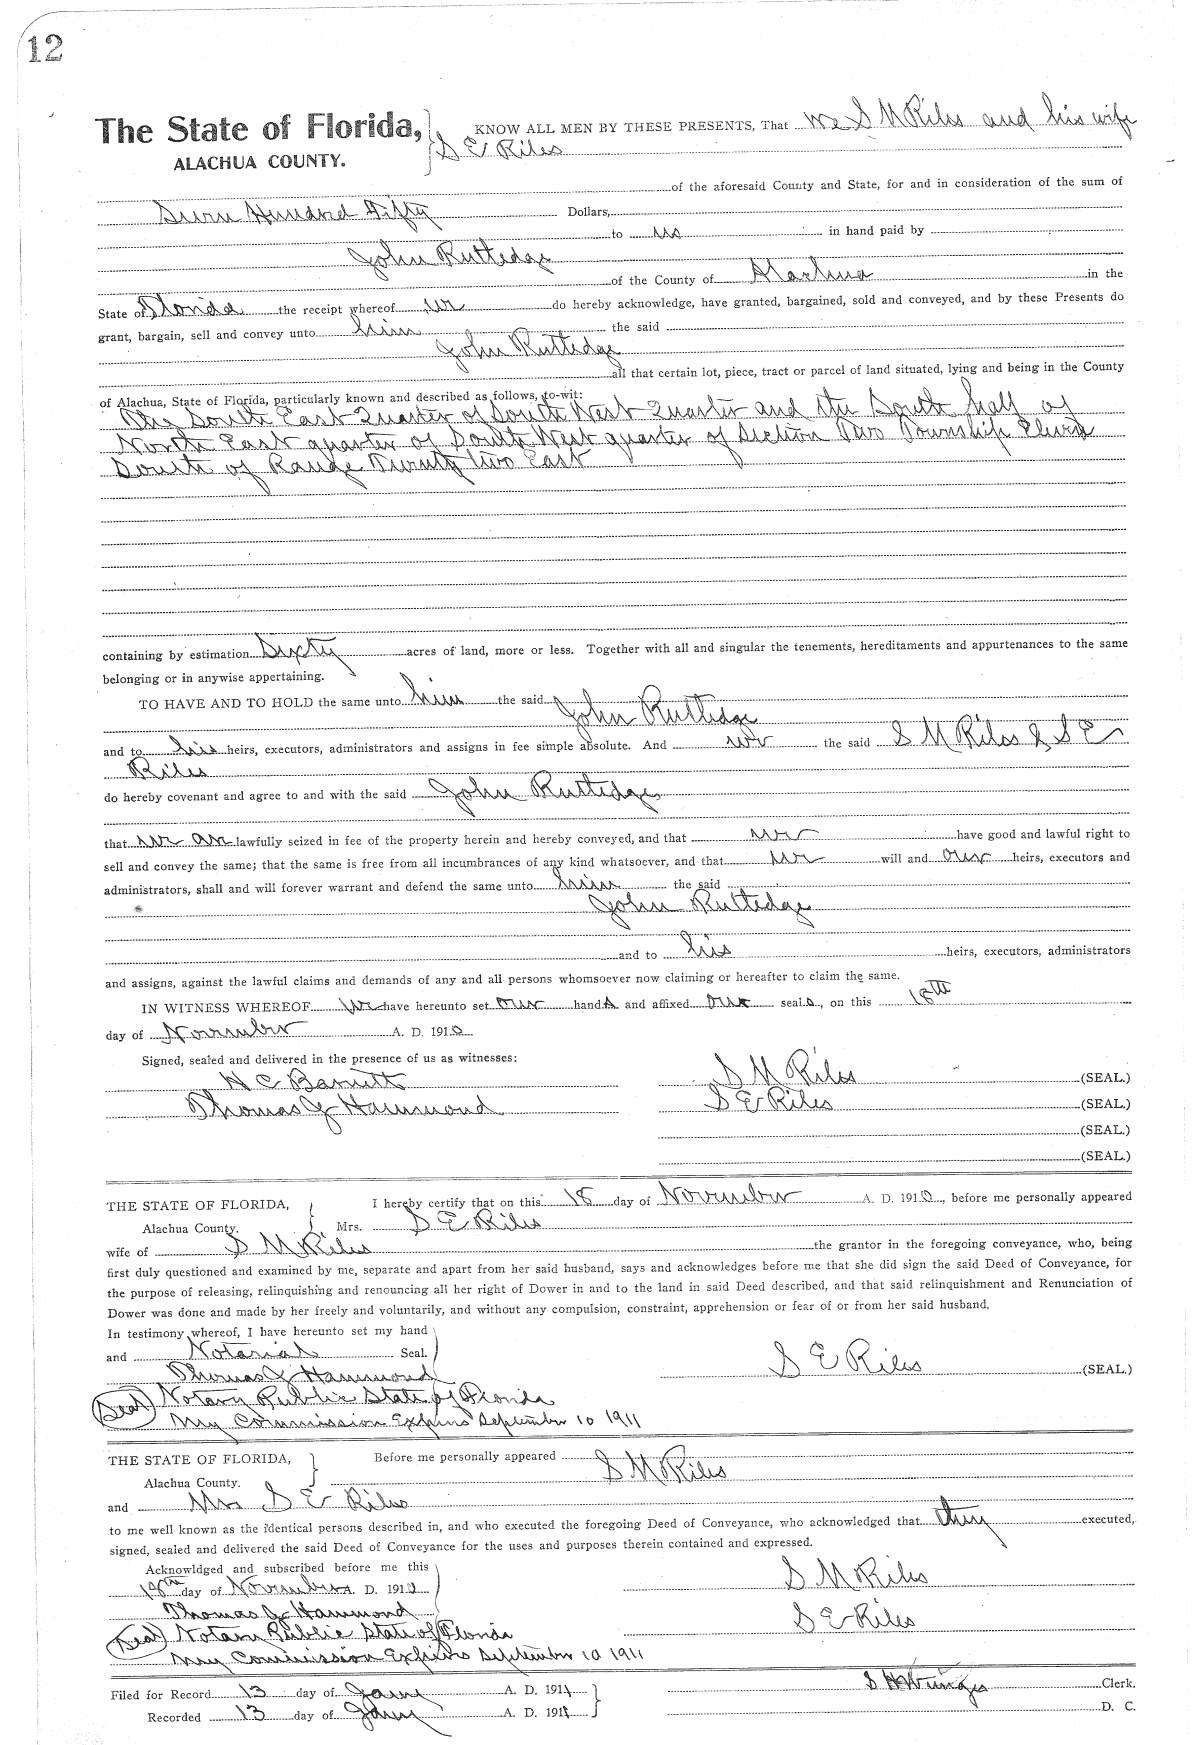 12
The State of Florida, KNOW ALL MEN BY THESE PRESENTS, That We S M Riles and his wife
ALACHUA COUNTY. S E Riles
of the aforesaid County and State, for and in consideration of the sum of
Seven Hundred Fifty Dollars,
to us in hand paid by
John Rutledge
of the County of Alachua in the
State of Florida the receipt whereof we do hereby acknowledge, have granted, bargained, sold and conveyed, and by these Presents do
grant, bargain, sell and convey unto him the said
John Rutledge
all that certain lot, piece, tract or parcel of land situated, lying and being in the County
of Alachua, State of Florida, particularly known and described as follows, to-wit:
The South East Quarter of South West Quarter and the South half of
North East quarter of South West quarter of Section Two Township Eleven
South of Range Twenty two East
containing by estimation Sixty acres of land, more or less. Together with all and singular the tenements, hereditaments and appurtenances to the same
belonging or in anywise appertaining.
TO HAVE AND TO HOLD the same unto him the said
John Rutledge
and to his heirs, executors, administrators and assigns in fee simple absolute. And we the said S M Riles & S E
Riles
do hereby covenant and agree to and with the said John Rutledge
that we are lawfully seized in fee of the property herein and hereby conveyed, and that we have good and lawful right to
sell and convey the same; that the same is free from all incumbrances of any kind whatsoever, and that we will and our heirs, executors and
administrators, shall and will forever warrant and defend the same unto him the said
John Rutledge
and to his heirs, executors, administrators
and assigns, against the lawful claims and demands of any and all persons whomsoever now claiming or hereafter to claim the same.
IN WITNESS WHEREOF We have hereunto set our hands and affixed our seals, on this 18th
day of November A. D. 1910
Signed, sealed and delivered in the presence of us as witnesses:
H C Barnett S M Riles (SEAL.)
Thomas J Hammond S E Riles (SEAL.)
(SEAL.)
(SEAL.)
THE STATE OF FLORIDA, I hereby certify that on this 18 day of November A. D. 1910, before me personally appeared
Alachua County. Mrs. S E Riles
wife of S M Riles the grantor in the foregoing conveyance, who, being
first duly questioned and examined by me, separate and apart from her said husband, says and acknowledges before me that she did sign the said Deed of Conveyance, for
the purpose of releasing, relinquishing and renouncing all her right of Dower in and to the land in said Deed described, and that said relinquishment and Renunciation of
Dower was done and made by her freely and voluntarily, and without any compulsion, constraint, apprehension or fear of or from her said husband.
In testimony whereof, I have hereunto set my hand
and Notarial Seal.
S E Riles (SEAL.)
Thomas J Hammond
Seal Notary Public State of Florida
My Commission Expires September 10 1911
THE STATE OF FLORIDA, Before me personally appeared S M Riles
Alachua County.
and Mrs S E Riles
to me well known as the identical persons described in, and who executed the foregoing Deed of Conveyance, who acknowledged that they executed,
signed, sealed and delivered the said Deed of Conveyance for the uses and purposes therein contained and expressed.
Acknowldged and subscribed before me this
18th day of November A. D. 1910 S M Riles
Thomas J Hammond S E Riles
Seal Notary Public State of Florida
My Commission Expires September 10 1911
Filed for Record 13 day of Jany A. D. 1911 Clerk.
Recorded 13 day of Jany A. D. 1911 D. C.